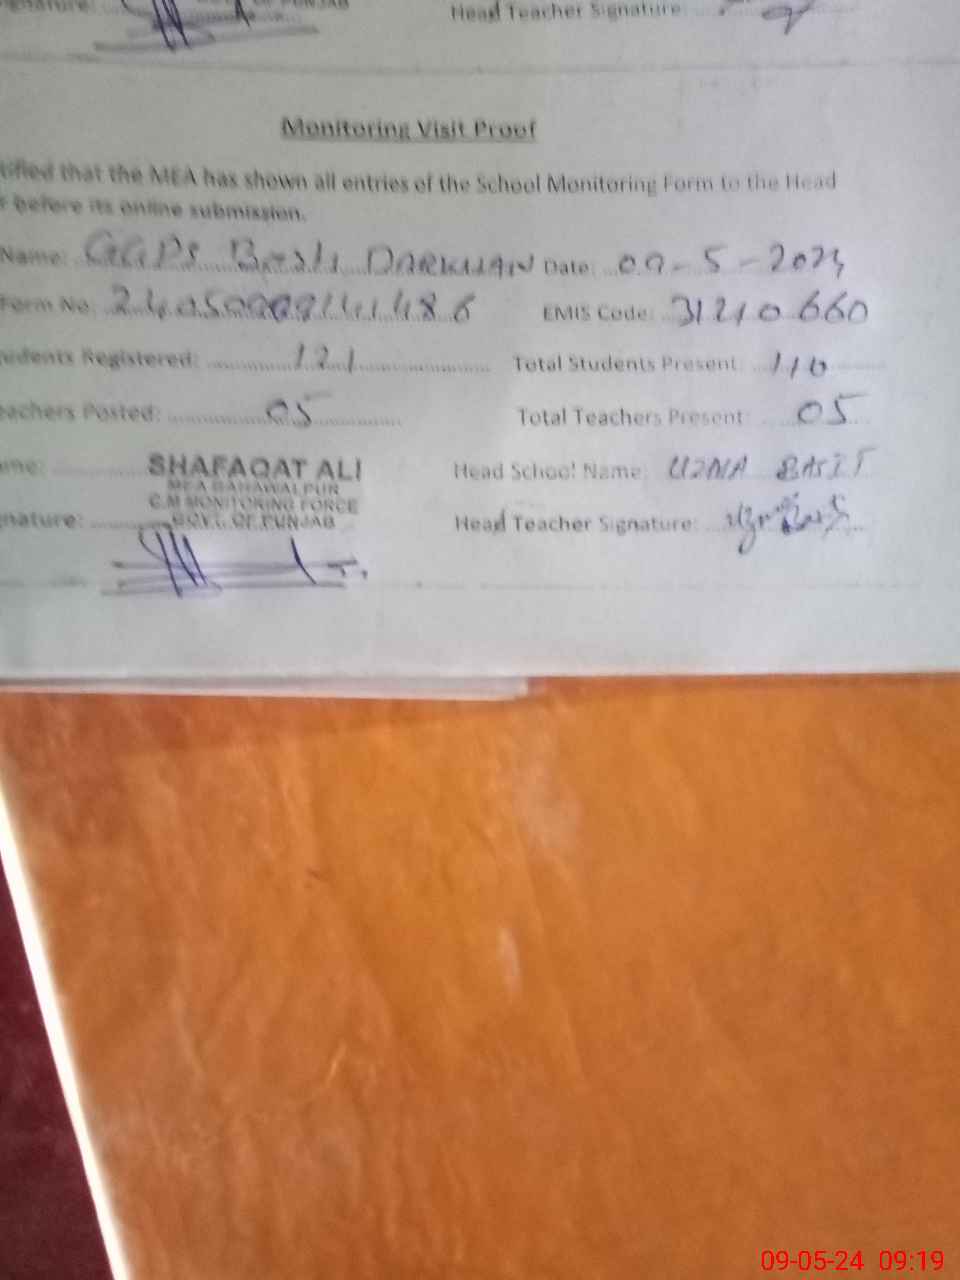 Head Teacher Signature:
Monitoring Visit Proof
tified that the MEA has shown all entries of the School Monitoring Form to the Head
r before its online submission.
Name: GGPS Basti DARKHAN Date: 09-5-2024
Form No. EMIS Code: 31210660
udents Registered: 121 Total Students Present: 110
eachers Posted: 05 Total Teachers Present: 05
ame: SHAFAQAT ALI Head School Name: UZMA BASIT
MEA BAHAWALPUR
C.M MONITORING FORCE
GOVT. OF PUNJAB
gnature: Head Teacher Signature:
09-05-24 09:19